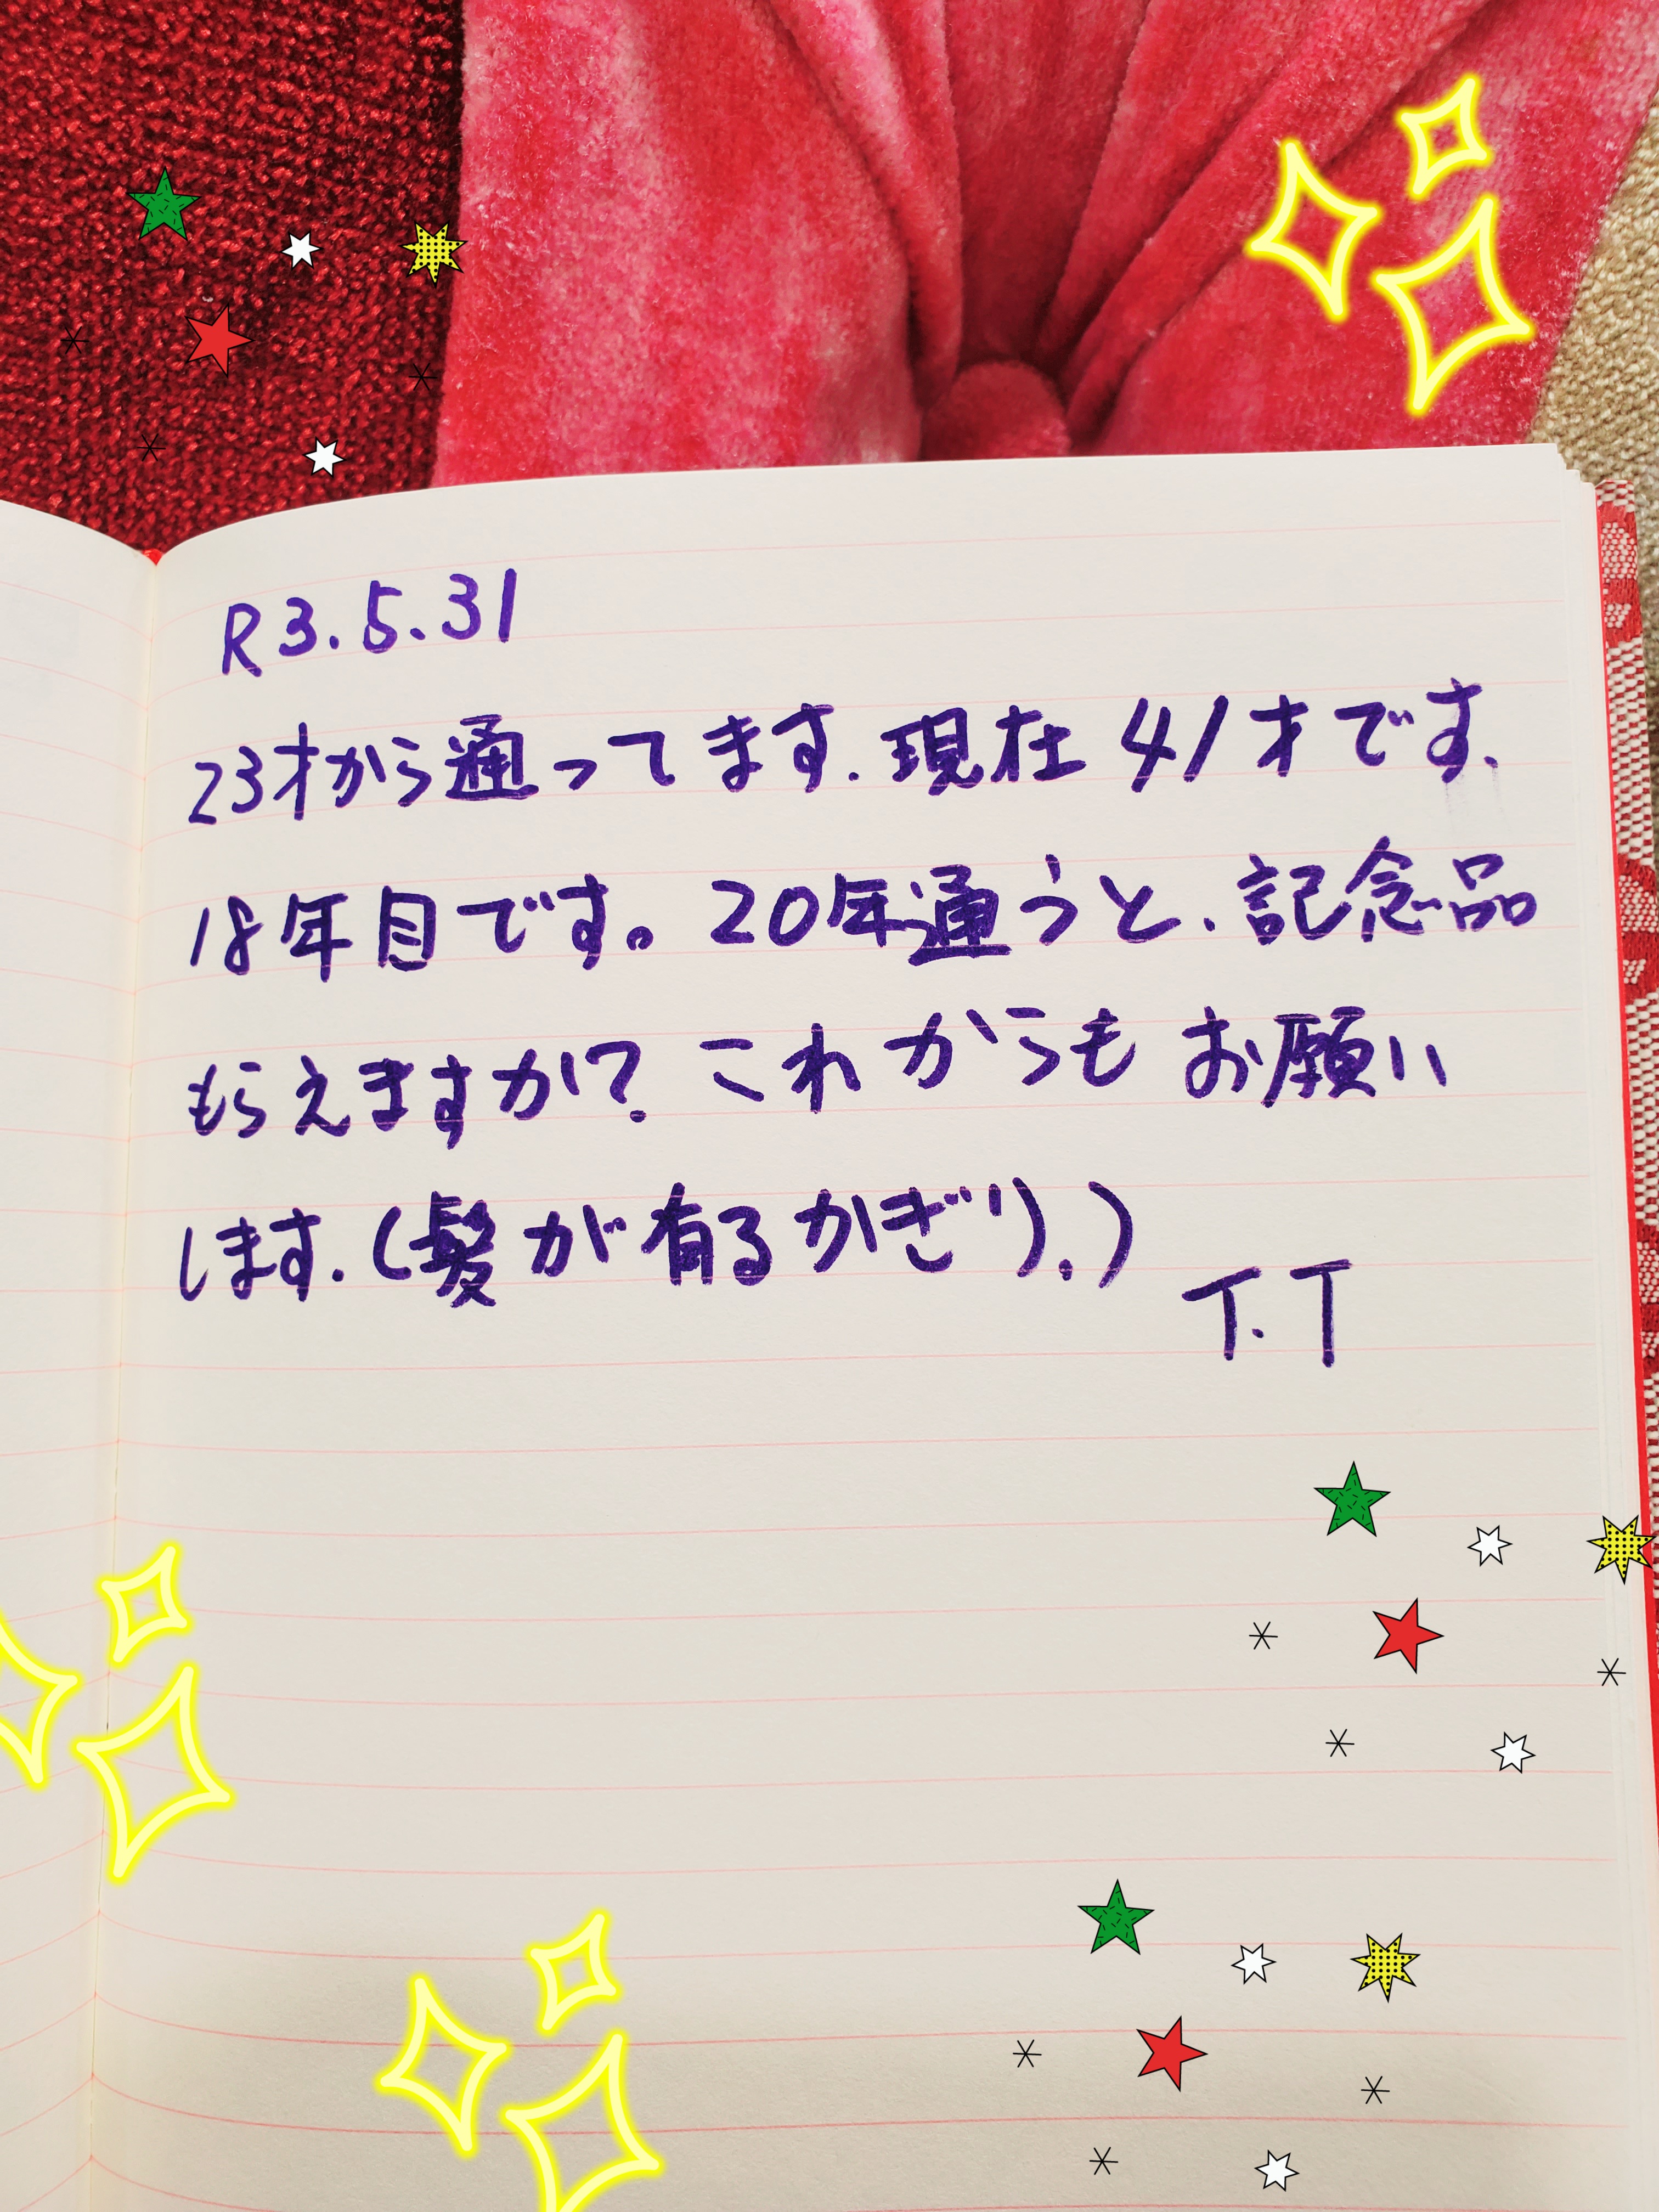 R3.5.31
23才から通ってます.現在41才です.
18年目です。20年通うと.記念品
もらえますか?これからもお願い
します.(髪が有るかぎり.)
T.T